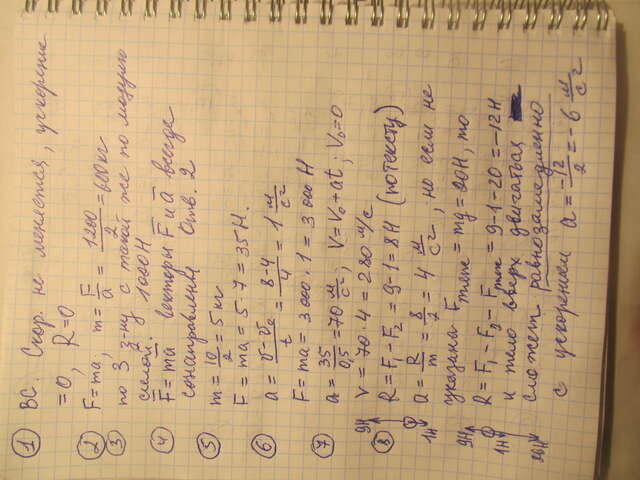 ① ВС. Скор. не меняется, ускорение
= 0, R = 0
② F = ma, m = F/a = 1200/2 = 600 кг
③ по 3 з-ну с такой же по модулю
силой. 1000Н
④ F = ma векторы F и a всегда
сонаправлены Отв. 2
⑤ m = 10/2 = 5 кг
F = ma = 5·7 = 35 Н.
⑥ a = (v - v₀)/t = (8-4)/4 = 1 м/с²
F = ma = 3000·1 = 3000 Н
⑦ a = 35/0,5 = 70 м/с²; V = V₀ + at; V₀ = 0
V = 70·4 = 280 м/с
⑧ R = F₁ - F₂ = 9 - 1 = 8Н (по тексту)
9Н
1Н
a = R/m = 8/2 = 4 м/с², но если не
указана Fтяж = mg = 20Н, то
9Н
1Н
20Н
R = F₁ - F₂ - Fтяж = 9 - 1 - 20 = -12Н
и тело вверх двигаться
сможет равнозамедленно
с ускорением a = -12/2 = -6 м/с²